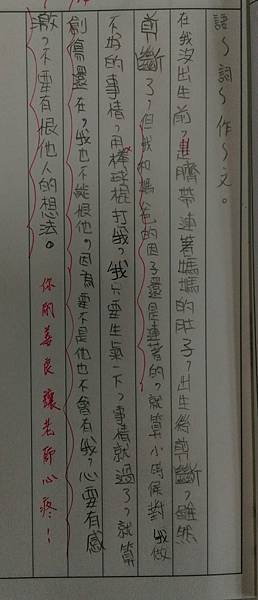 語、詞、作、文。
在我沒出生前，臍帶連著媽媽的肚子，出生後剪斷，雖然
剪斷了，但我和媽爸的因子還是連著的，就算小時候對我做
不好的事情，用棒球棍打我，我只要生氣一下，事情就過了，就算
創傷還在，我也不能恨他，因為要不是他也不會有我，心要有感
激，不要有恨他人的想法。
你的善良讓老師心疼！